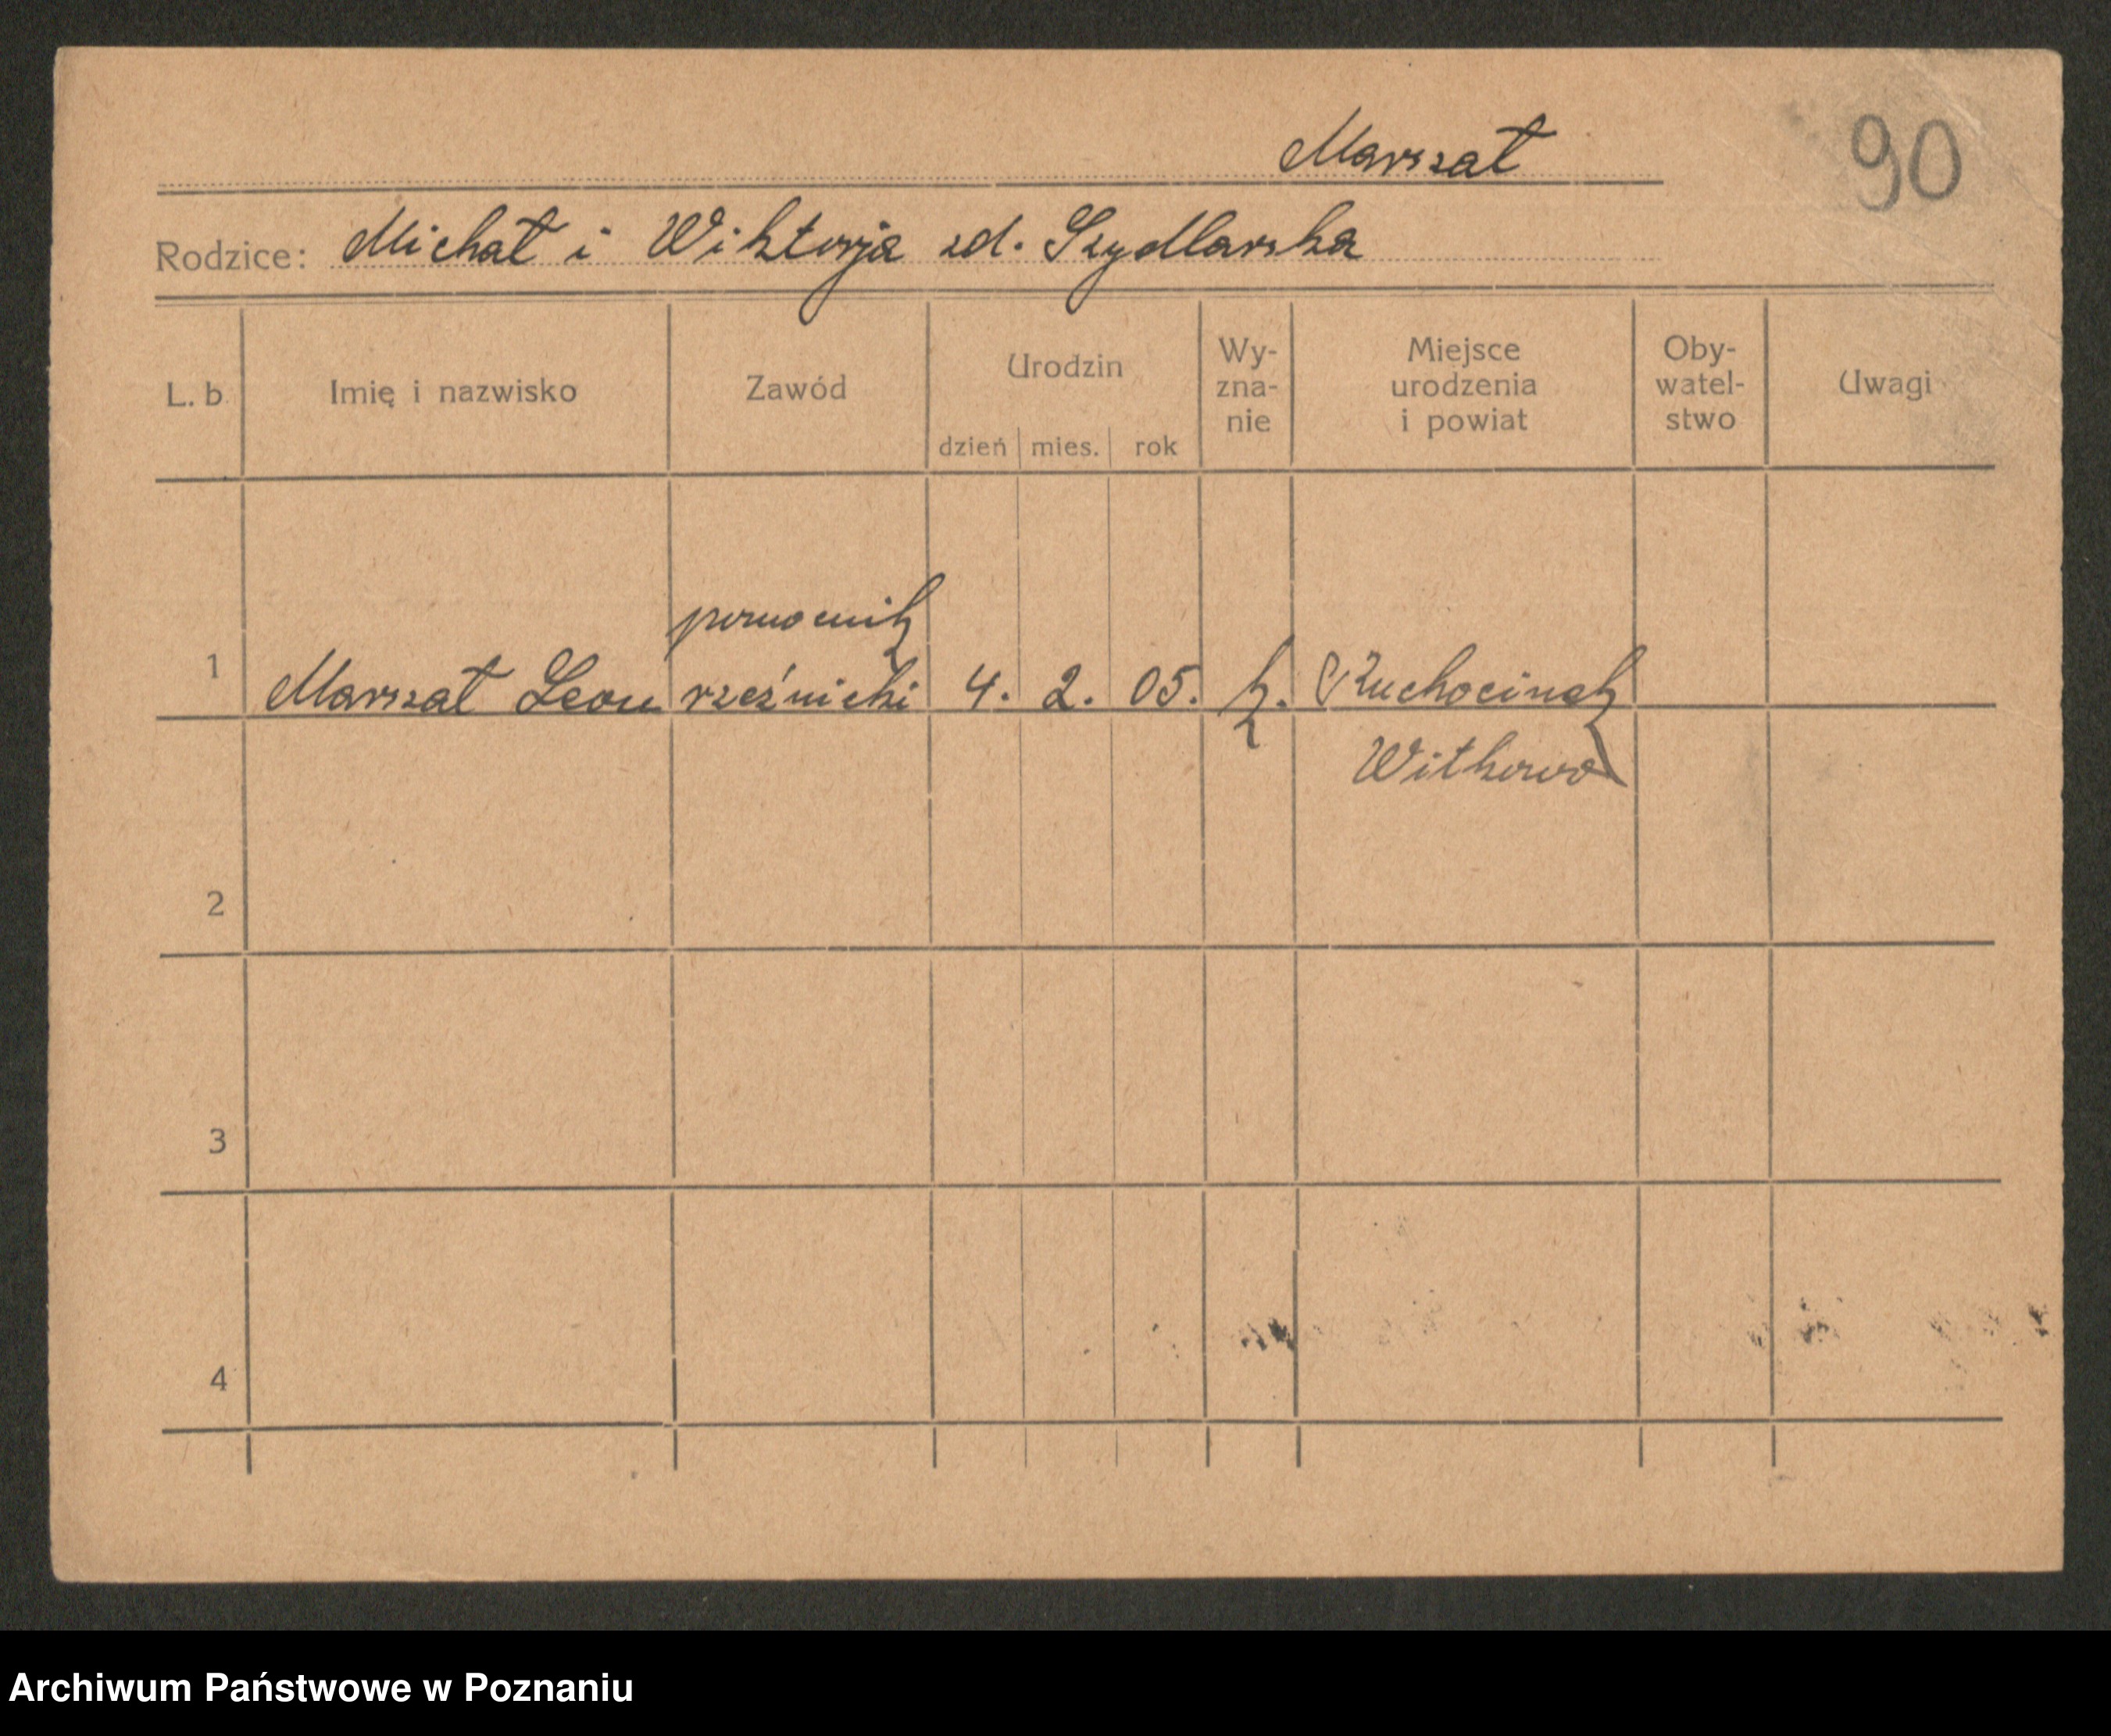 Marszał
90
Rodzice: Michał i Wiktorja zd. Szydlarska
L. b.
Imię i nazwisko
Zawód
Urodzin
dzień mies. rok
Wy-
zna-
nie
Miejsce
urodzenia
i powiat
Oby-
watel-
stwo
Uwagi
pomocnik
1 Marszał Leon rzeźnicki 4. 2. 05. k. Ruchocinek
Witkowo
2
3
4
Archiwum Państwowe w Poznaniu